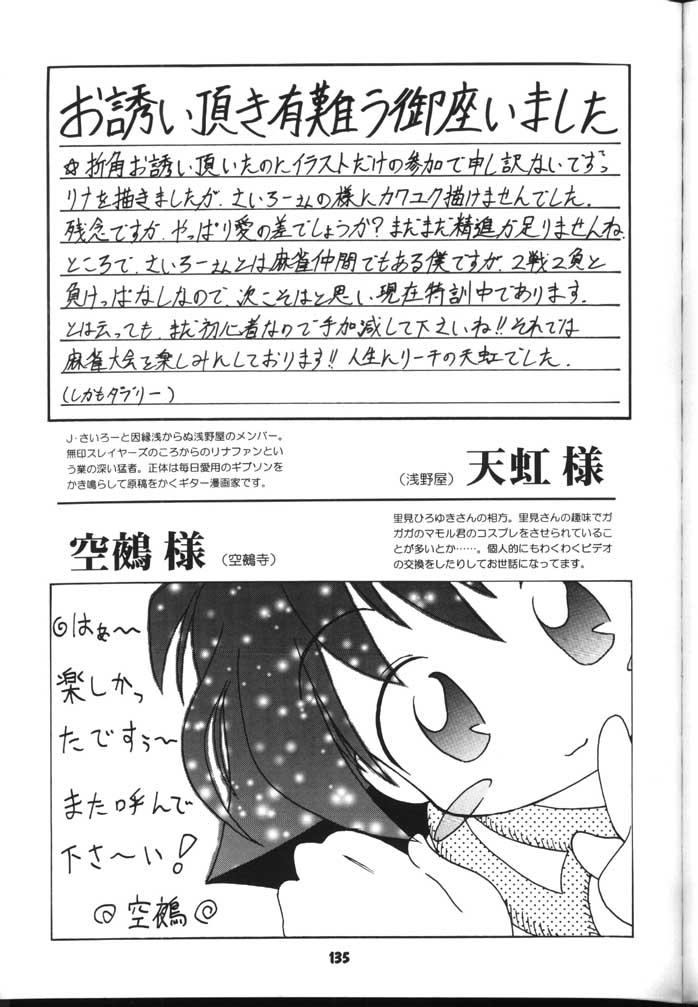 お誘い頂き有難う御座いました
☆折角お誘い頂いたのにイラストだけの参加で申し訳ないですっ
リナを描きましたが、さいろーさんの様にカワユク描けませんでした。
残念ですが、やっぱり愛の差でしょうか?まだまだ精進が足りませんね。
ところで、さいろーさんとは麻雀仲間でもある僕ですが、2戦2負と
負けっぱなしなので、次こそはと思い現在特訓中であります。
とは云っても、まだ初心者なので手加減して下さいね!!それでは
麻雀大会を楽しみにしております!!人生にリーチの天虹でした。
(しかもダブリー)
J・さいろーと因縁浅からぬ浅野屋のメンバー。
無印スレイヤーズのころからのリナファンとい
う業の深い猛者。正体は毎日愛用のギブソンを
かき鳴らして原稿をかくギター漫画家です。
(浅野屋)天虹 様
空鵺 様(空鵺寺)
里見ひろゆきさんの相方。里見さんの趣味でガ
ガガのマモル君のコスプレをさせられているこ
とが多いとか……。個人的にもわくわくビデオ
の交換をしたりしてお世話になってます。
◎はぁ〜
楽しかっ
たですぅ〜
また呼んで
下さ〜い!
◎空鵺◎
135